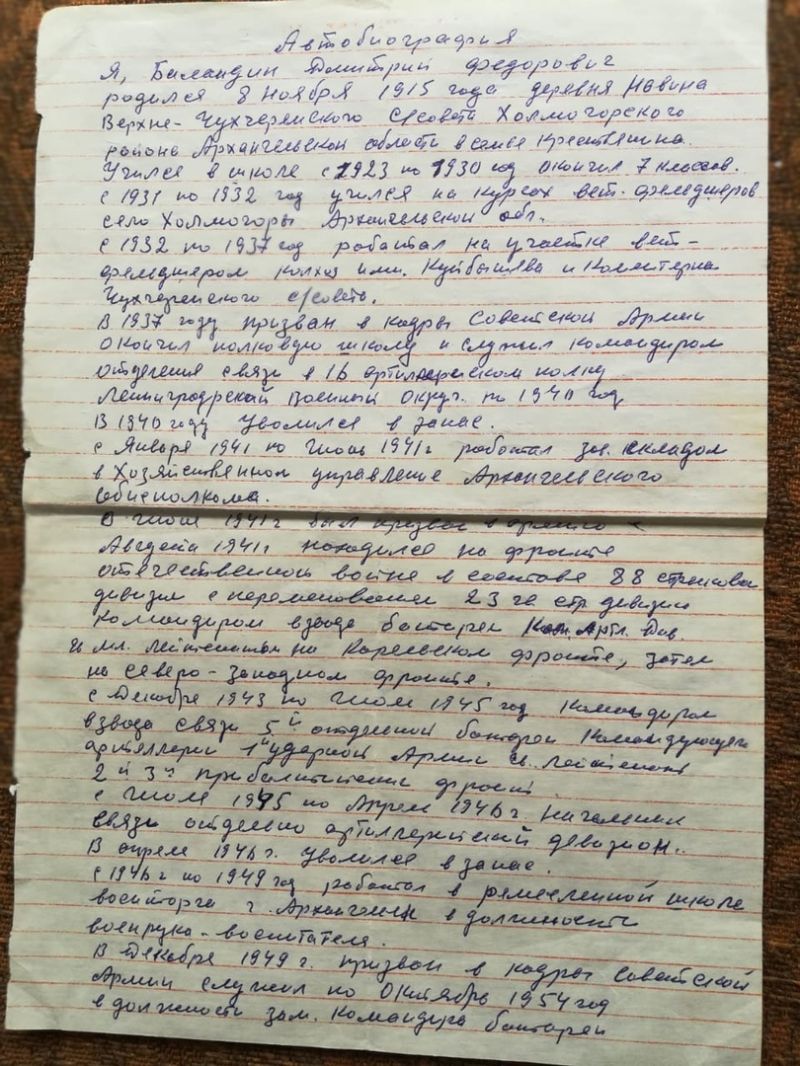 Автобиография
Я, Баландин Дмитрий Федорович
родился 8 ноября 1915 года деревня Навина
Верхне-Чухчеремского с/совета Холмогорского
района Архангельской области в семье Крестьянина.
Учился в школе с 1923 по 1930 год окончил 7 классов.
с 1931 по 1932 год учился на курсах вет. фельдшеров
село Холмогоры Архангельской обл.
с 1932 по 1937 год работал на участке вет-
фельдшером колхоз имени Куйбышева и Коминтерна
Чухчеремского с/совета.
В 1937 году призван в кадры Советской Армии
окончил полковую школу и служил командиром
отделения связи в 16 артиллерийском полку
Ленинградской Военный Округ. по 1940 год
В 1940 году Уволился в запас.
с Января 1941 по Июль 1941г работал зав. складом
в Хозяйственном управление Архангельского
облисполкома.
В Июле 1941г был призван в армию с
Августа 1941г находился на фронте
отечественной войне в составе 88 стрелковой
дивизии с переменованием 23 гв. стр. дивизии
командиром взвода батареи Артл. Див
мл. лейтенантом на Карельском фронте, затем
на Северо-Западном фронте.
с Декабря 1943 по Июль 1945 год Командиром
взвода связи 5й отдельной батареи Командующего
артиллерией 1й ударной Армии лейтенант
2й 3й прибалтийский фронт.
с Июля 1945 по Апрель 1946г. Начальник
связи отдельно артиллерийский дивизион.
В апреле 1946г. Уволился в запас.
с 1946 по 1949 год работал в ремесленной школе
военторга г. Архангельск в должности
военрука-воспитателя.
В Декабре 1949г. призван в кадры Советской
Армии служил по Октябрь 1954 год
в должности зам. Командира батареи